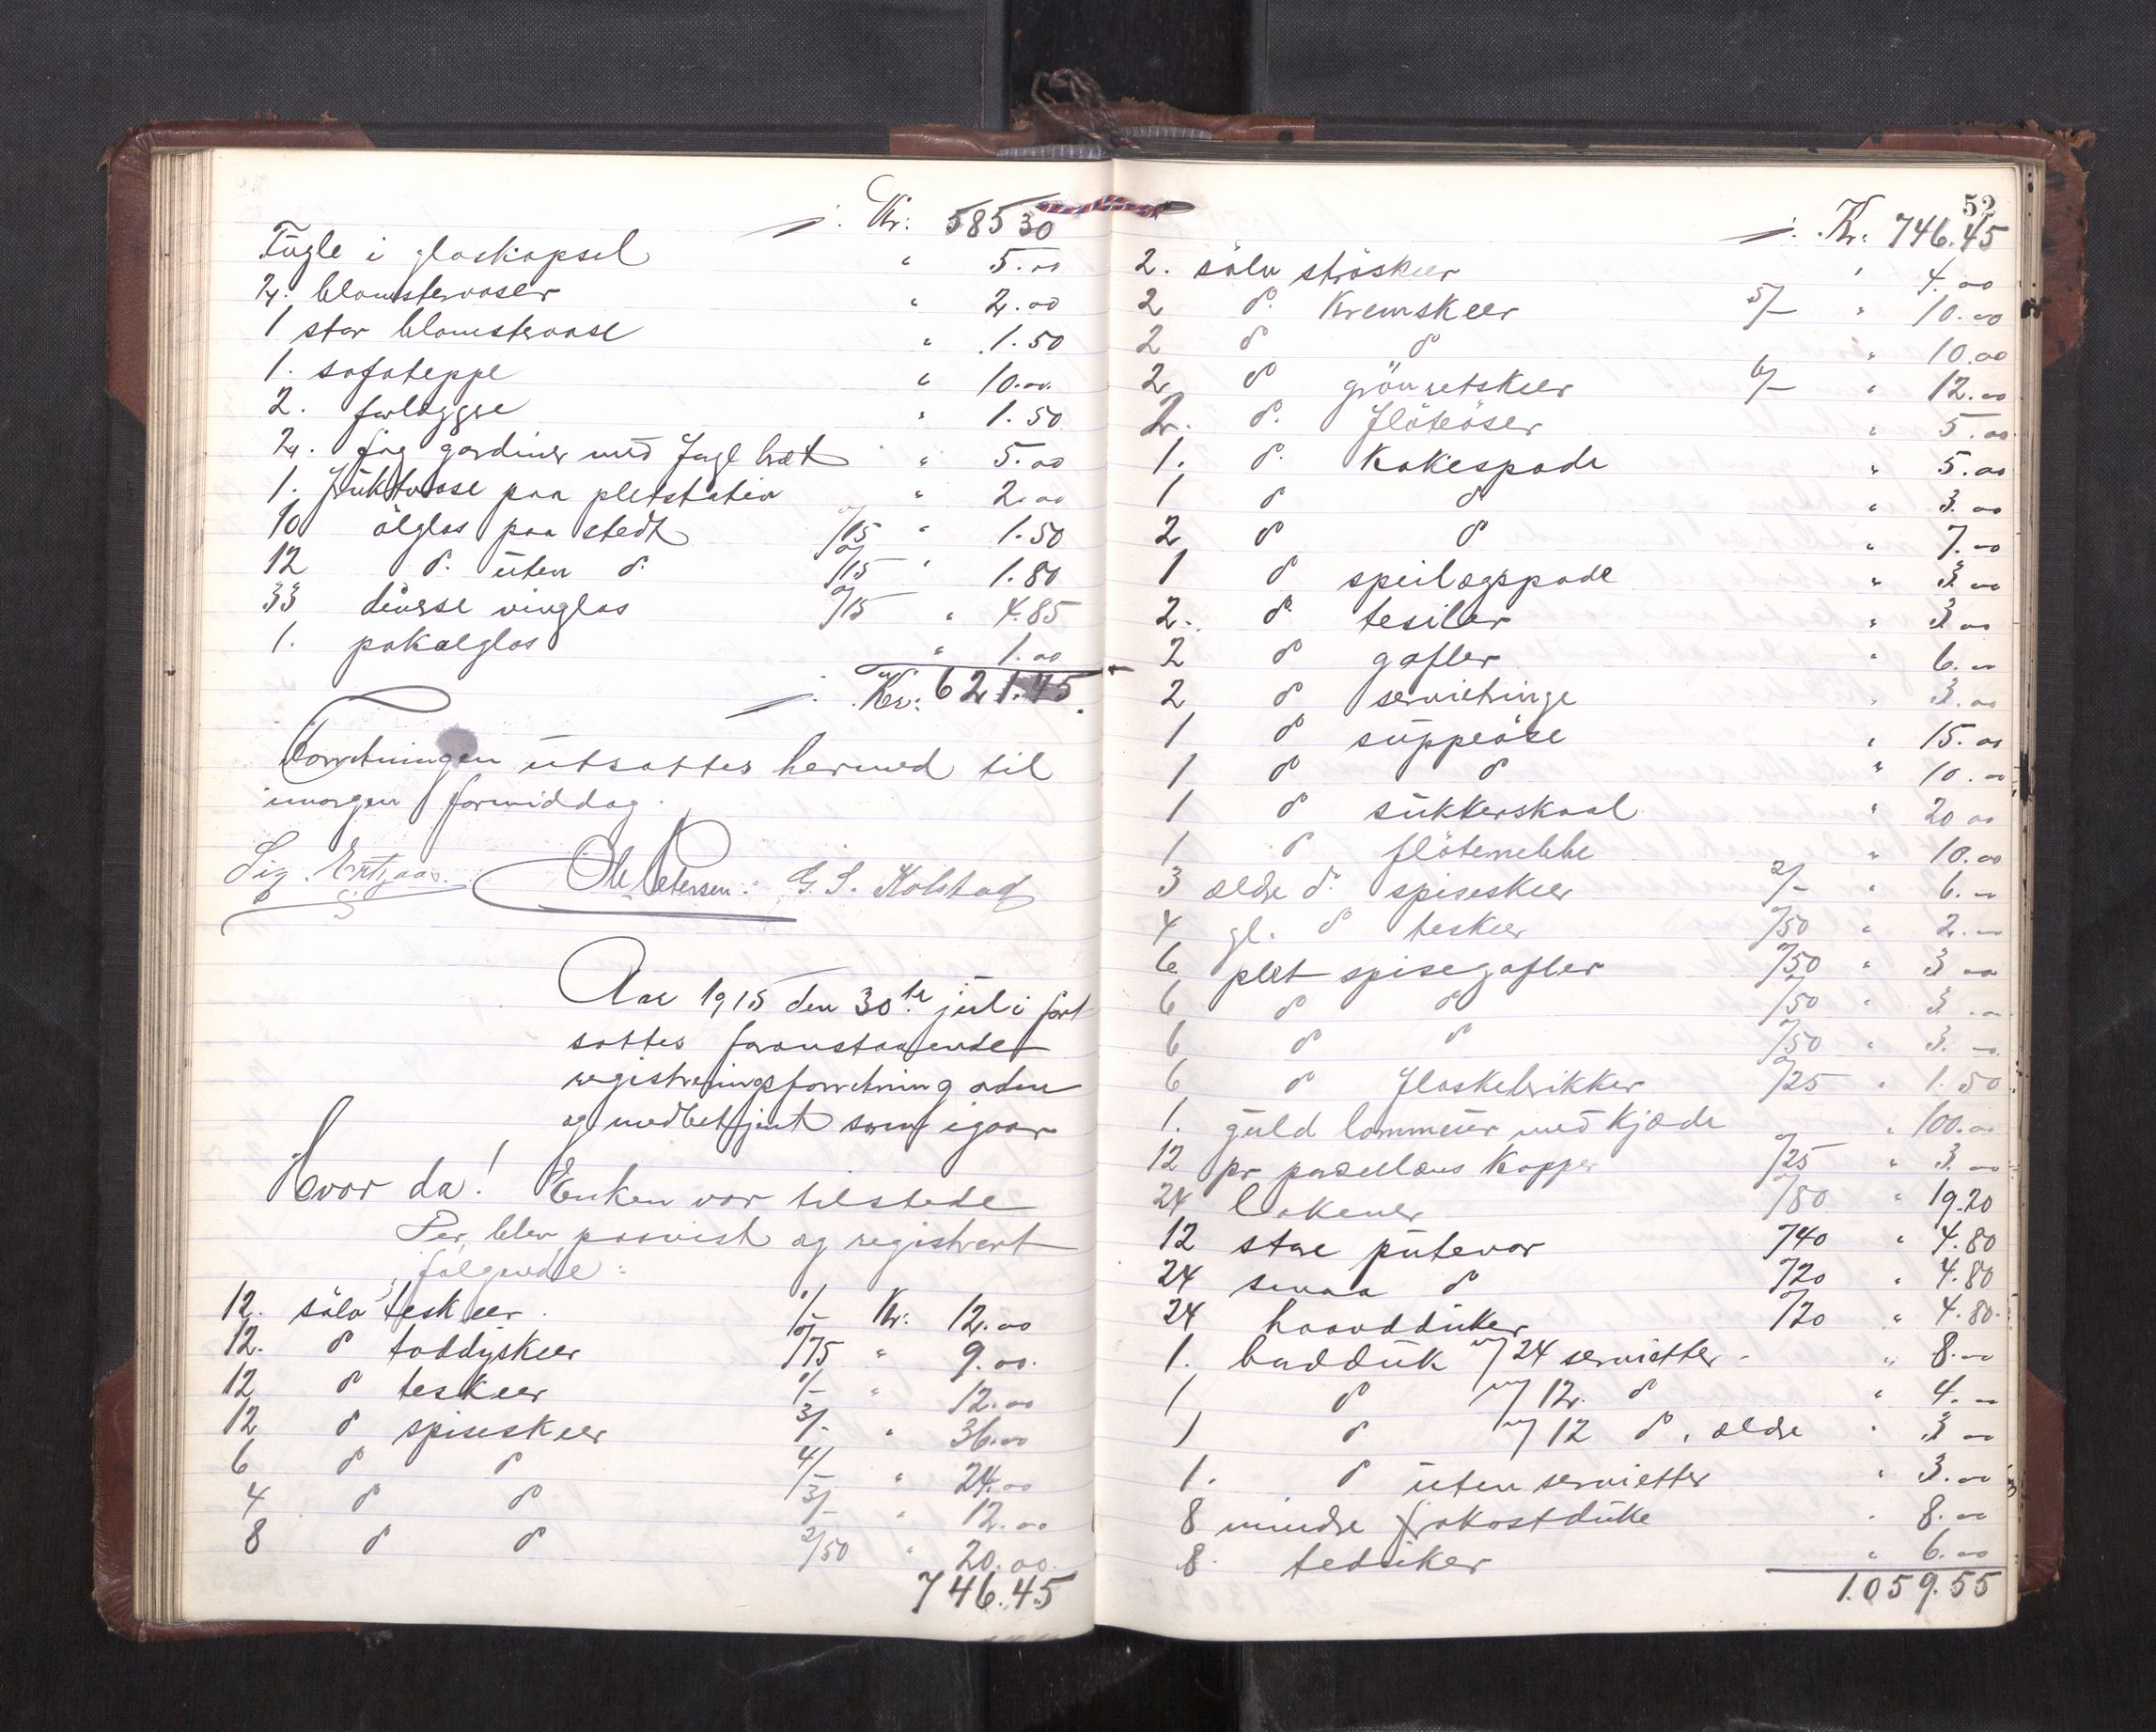 ./. Kr: 585 30
Fugle i glaskapsel " 5.00
2. blomstervaser " 2.00
1 stor blomstervase " 1.50
1. sofateppe " 10.00
2. forlæggre " 1.50
2. fag gardiner med fagl bræt " 5.00
1. fruktvase paa pletstativ " 2.00
10 ölglas paa stedt 0/15 " 1.50
12 do. uten do. 0/15 " 1.80
33 diverse vinglas 0/15 " 4.85
1. pokalglas " 1.00
./. Kr: 621.45.
Forretningen utsattes hermed til
imorgen formiddag.
Sig. Ole Petersen. G. S. Kolstad
Aar 1915 den 30te juli fort
sattes foranstaaende
registreringsforretning adm
og medbetjent som igaar
Hvor da! Enken var tilstede
Der blev paavist og registrert
fölgende:
12. sölv teskeer. 1/- Kr: 12.00
12. do toddyskeer 0/75 " 9.00.
12 do teskeer 1/- " 12.00
12 do spiseskeer 3/- " 36.00
6 do do 4/- " 24.00
4 do do 3/- " 12.00
8 do do 2/50 " 20.00.
746.45
52
./. Kr: 746.45
2. sölv ströskeer " 4.00
2 do. Kremskeer 5/- " 10.00
2 do do " 10.00
2 do grönsetskeer 6/- " 12.00
2. do. flöteöser " 5.00
1. do. Kakespade " 5.00
1 do do " 3.00
2 do do " 7.00
1 do speilægspade " 3.00
2. do tesiler " 3.00
2 do gafler " 6.00
2 do servietringe " 3.00
1 do suppeöse " 15.00
1 do do " 10.00
1 do sukkerskaal " 20 00
1 do flötemebbe " 10.00
3 ældre do. spiseskeer 2/- " 6.00
4 gl. do teskeer 0/50 " 2.00
6 plet spisegafler 0/50 " 3 00
6 do do 0/50 " 3.00
6 do do 0/50 " 3.00
6 do flaskebrikker 0/25 " 1.50
1. guld lommeur med kjæde " 100.00
12 pr porsellæns kopper 0/25 " 3 00
24 lakener 0/80 " 19.20
12 store putevar /40 " 4.80
24 smaa do /20 " 4.80
24 haandduker /20 " 4.80.
1. bordduk m/ 24 servietter - " 8.00
1 do m/ 12. do " 4.00
1 do m/ 12 do. ældre " 3 00
1. do uten servietter " 3.00
8 mindre frokostduke " 8.00
8. teduker " 6.00
1.059.55